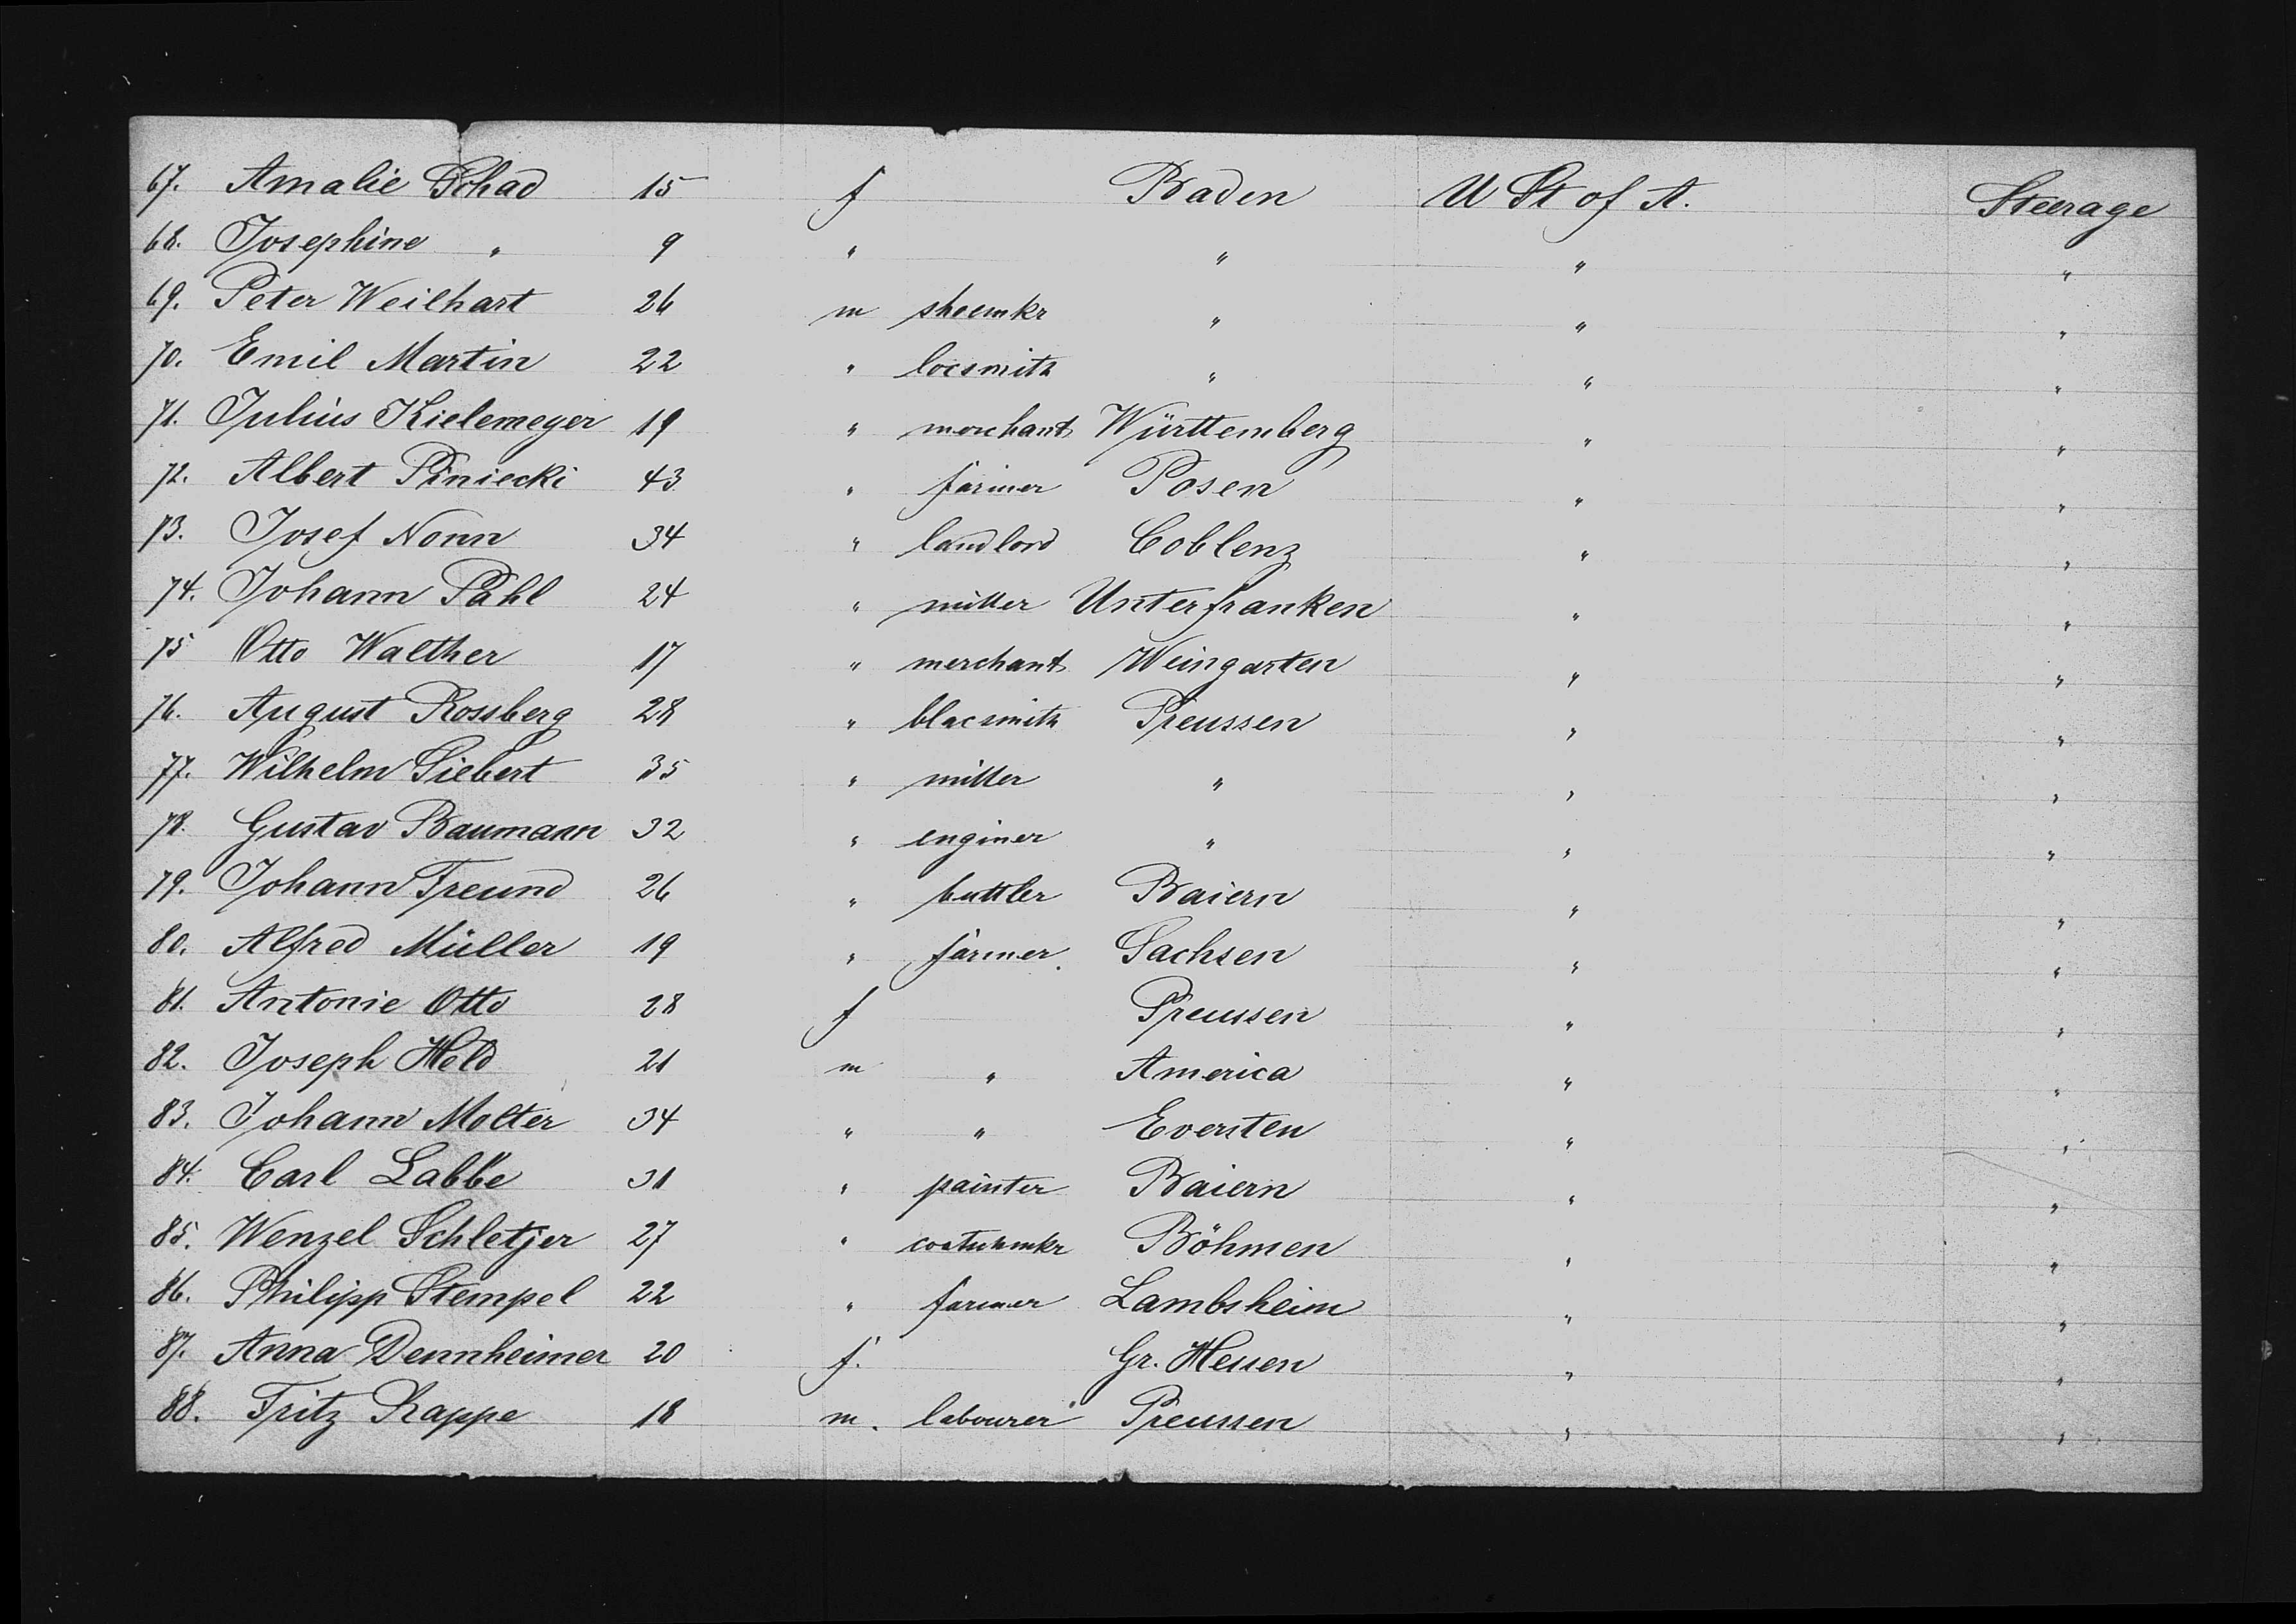 67. Amalie Schad 15 f Baden U St of A. Steerage
68. Josephine " 9 " " " "
69. Peter Weilhart 26 m shoemkr " " "
70. Emil Martin 22 " locsmith " " "
71. Julius Kielemeyer 19 " merchant Württemberg " "
72. Albert Piniecki 43 " farmer Posen " "
73. Josef Nonn 34 " landlord Coblenz " "
74. Johann Pahl 24 " miller Unterfranken " "
75 Otto Walther 17 " merchant Weingarten " "
76. August Rossberg 28 " blacsmith Preussen " "
77. Wilhelm Siebert 35 " miller " " "
78. Gustav Baumann 32 " enginer " " "
79. Johann Freund 26 " buttler Baiern " "
80. Alfred Müller 19 " farmer. Sachsen " "
81. Antonie Otto 28 f Preussen " "
82. Joseph Held 21 m " America " "
83. Johann Molter 34 " " Eversten " "
84. Carl Labbé 31 " painter Baiern " "
85. Wenzel Schletjer 27 " Böhmen " "
86. Philipp Stempel 22 " farmer Lambsheim " "
87. Anna Dennheimer 20 f. Gr. Hessen " "
88. Fritz Rappe 18 m. labourer Preussen " "